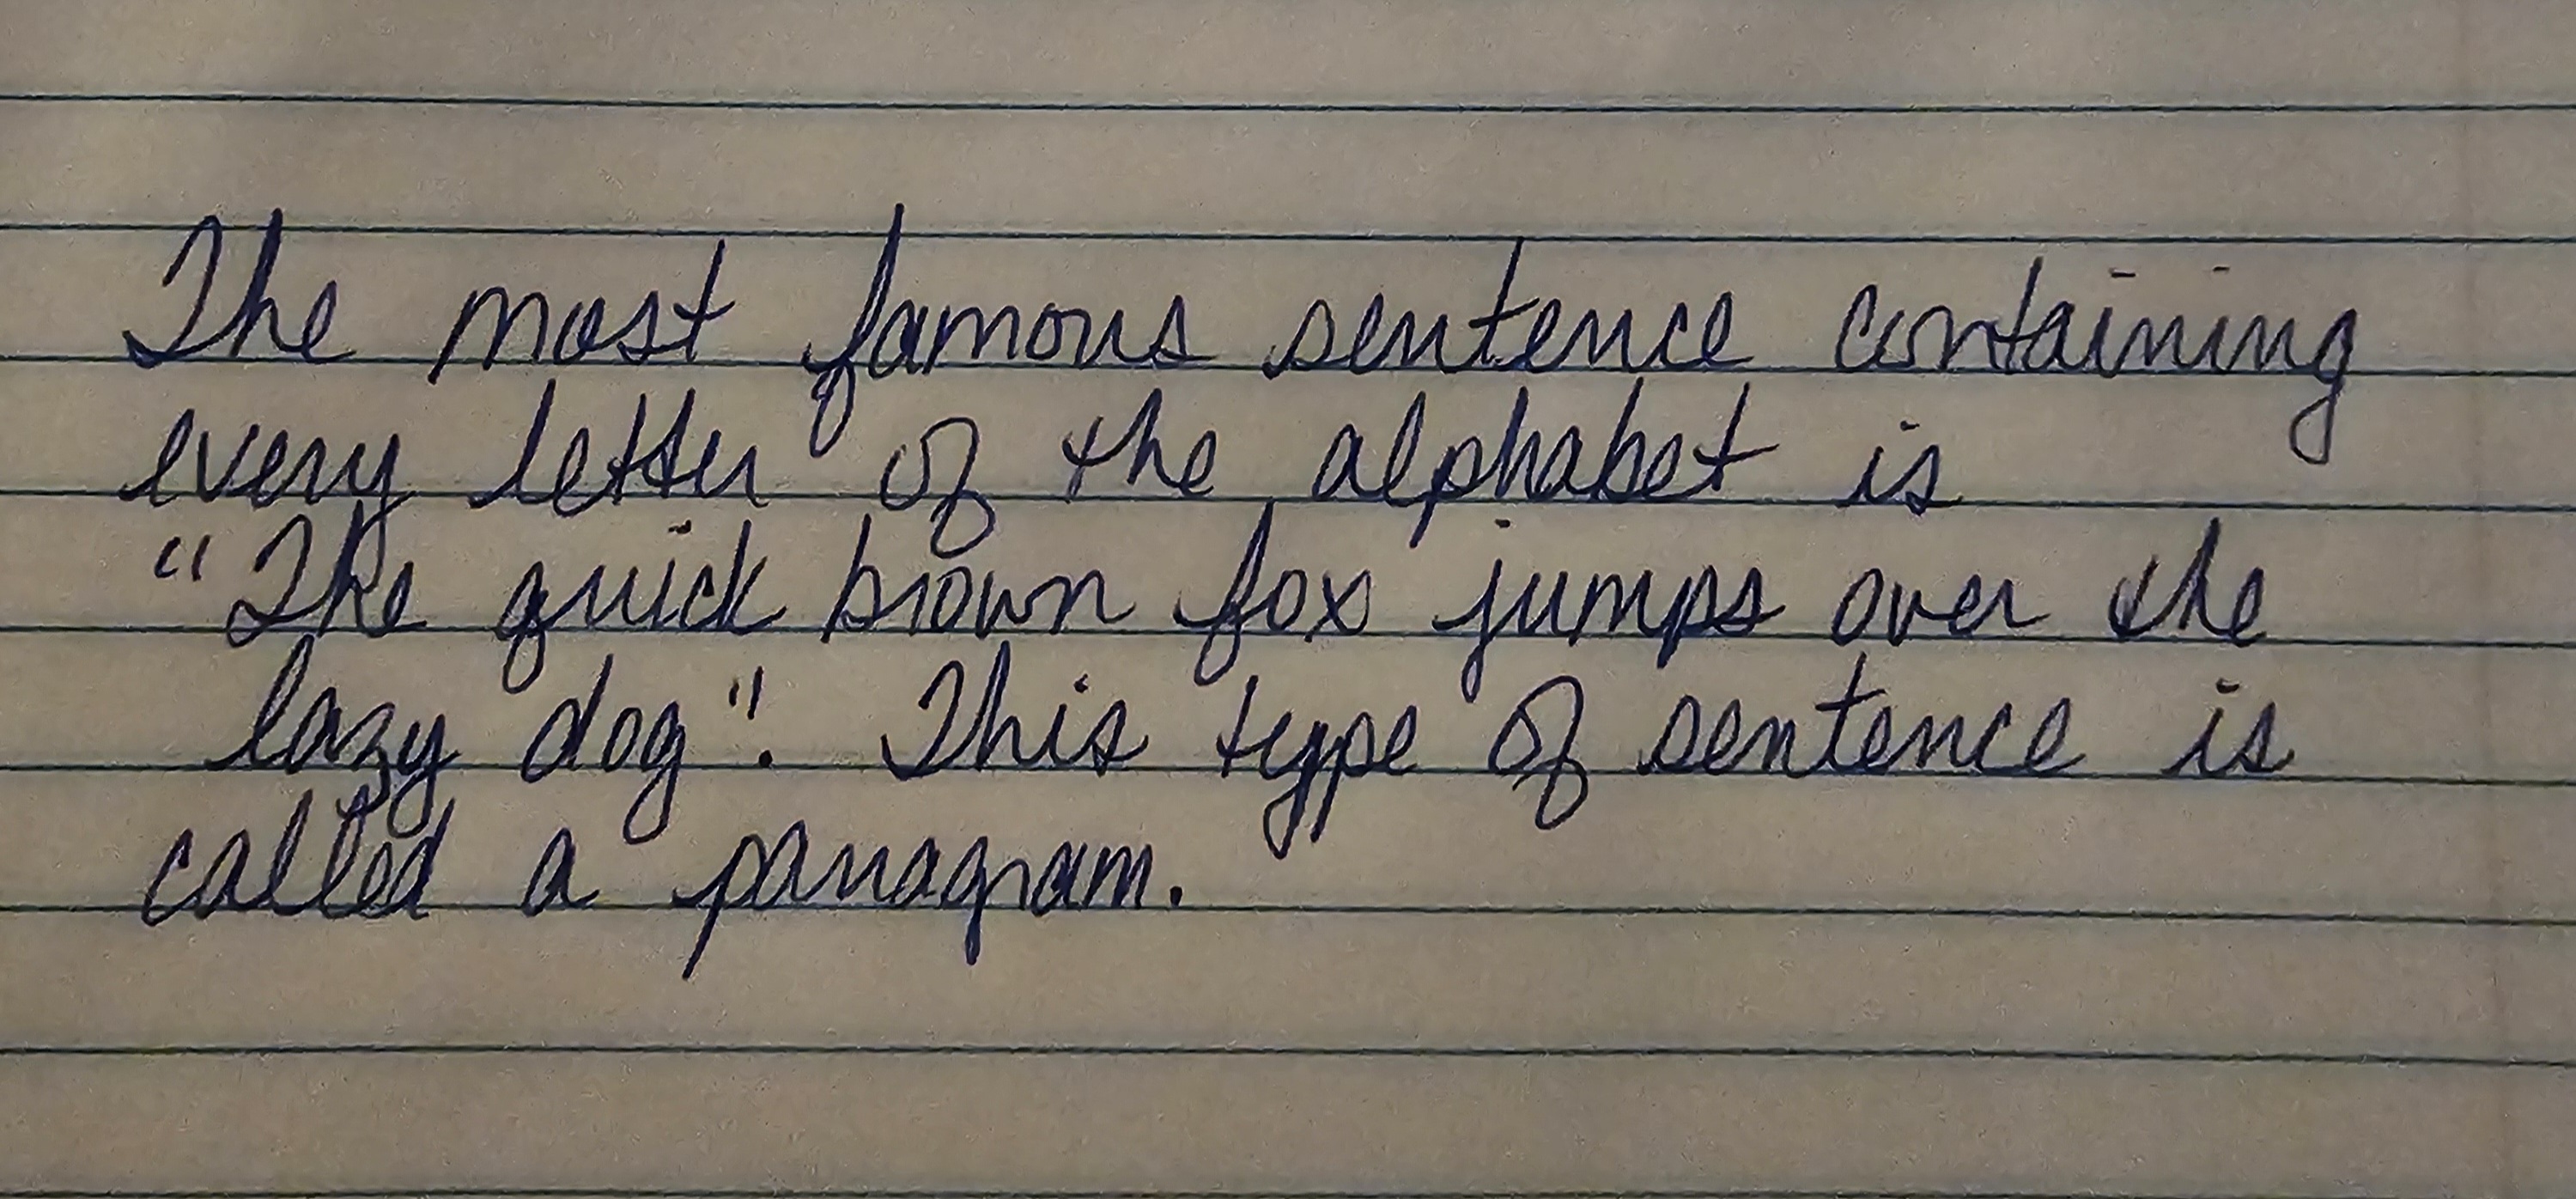 The most famous sentence containing
every letter of the alphabet is
"The quick brown fox jumps over the
lazy dog". This type of sentence is
called a panagram.